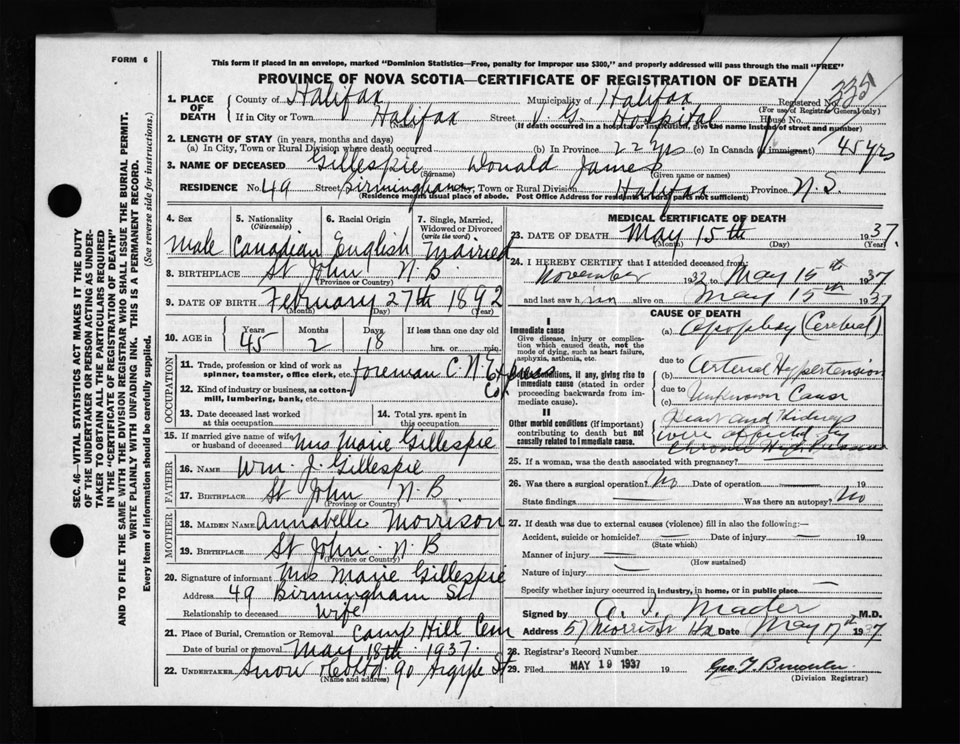 FORM 6
This form if placed in an envelope, marked "Dominion Statistics—Free, penalty for improper use $300," and properly addressed will pass through the mail "FREE"
PROVINCE OF NOVA SCOTIA—CERTIFICATE OF REGISTRATION OF DEATH
1. PLACE OF DEATH
County of Halifax Municipality of Halifax Registered No. 335
(For use of Registrar General only)
If in City or Town Halifax Street V. G. Hospital House No.
(Name) (If death occurred in a hospital or institution, give the name instead of street and number)
2. LENGTH OF STAY (in years, months and days)
(a) In City, Town or Rural Division where death occurred (b) In Province 22 yrs (c) In Canada (if immigrant) 45 yrs
3. NAME OF DECEASED Gillespie Donald James
(Surname) (Given name or names)
RESIDENCE No. 49 Street Birmingham City, Town or Rural Division Halifax Province N.S.
(Residence means usual place of abode. Post Office Address for residents in rural parts not sufficient)
4. Sex
Male
5. Nationality (Citizenship)
Canadian
6. Racial Origin
English
7. Single, Married, Widowed or Divorced (write the word)
Married
8. BIRTHPLACE St John N.B.
(Province or Country)
9. DATE OF BIRTH February 27th 1892
(Month) (Day) (Year)
10. AGE in Years Months Days If less than one day old
45 2 18 hrs. or min.
OCCUPATION
11. Trade, profession or kind of work as spinner, teamster, office clerk, etc. foreman C.N. Express Co.
12. Kind of industry or business, as cotton-mill, lumbering, bank, etc.
13. Date deceased last worked at this occupation
14. Total yrs. spent in this occupation
15. If married give name of wife or husband of deceased Mrs. Marie Gillespie
FATHER
16. NAME Wm. J. Gillespie
17. BIRTHPLACE St John N.B.
(Province or Country)
MOTHER
18. MAIDEN NAME Annabelle Morrison
19. BIRTHPLACE St John N.B
(Province or Country)
20. Signature of informant Mrs Marie Gillespie
Address 49 Birmingham St
Relationship to deceased Wife
21. Place of Burial, Cremation or Removal Camp Hill Cem
Date of burial or removal May 18th 1937
22. UNDERTAKER Snow 90 Argyle St
(Name and address)
MEDICAL CERTIFICATE OF DEATH
23. DATE OF DEATH May 15th 1937
(Month) (Day) (Year)
24. I HEREBY CERTIFY that I attended deceased from
November 1932 to May 15th 1937
and last saw him alive on May 15th 1937
CAUSE OF DEATH
I
Immediate cause
Give disease, injury or complication which caused death, not the mode of dying, such as heart failure, asphyxia, asthenia, etc.
(a) Apoplexy (Cerebral)
due to
Morbid conditions, if any, giving rise to immediate cause (stated in order proceeding backwards from immediate cause).
(b) Arterial Hypertension
due to
(c) Unknown Cause
II
Other morbid conditions (if important) contributing to death but not causally related to immediate cause.
Heart and Kidneys
were affected by
Chronic
25. If a woman, was the death associated with pregnancy?
26. Was there a surgical operation? No Date of operation 19
State findings Was there an autopsy? No
27. If death was due to external causes (violence) fill in also the following:—
Accident, suicide or homicide? Date of injury 19
(State which)
Manner of injury
(How sustained)
Nature of injury
Specify whether injury occurred in industry, in home, or in public place
Signed by A. I. Mader M.D.
Address 57 Morris St Hx Date May 17th 1937
28. Registrar's Record Number
29. Filed MAY 19 1937 19
(Division Registrar)
SEC. 46—VITAL STATISTICS ACT MAKES IT THE DUTY
OF THE UNDERTAKER OR PERSON ACTING AS UNDER-
TAKER TO OBTAIN ALL THE PARTICULARS REQUIRED
IN THE "CERTIFICATE OF REGISTRATION OF DEATH"
AND TO FILE THE SAME WITH THE DIVISION REGISTRAR WHO SHALL ISSUE THE BURIAL PERMIT.
WRITE PLAINLY WITH UNFADING INK. THIS IS A PERMANENT RECORD.
Every item of information should be carefully supplied. (See reverse side for instructions.)